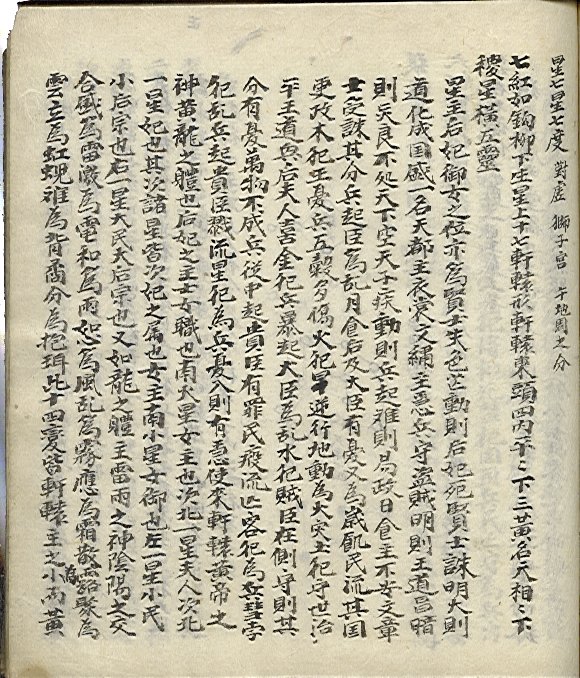 星七星七度 對虛 獅子宮 午地周之分
七紅如鈎柳下生星上十七軒轅形軒轅東頭四內平〻下三黃名天相〻下
稷星橫五靈
星主后妃御女之位亦為賢士失色芒動則后妃死賢士誅明大則
道化成國盛一名天都主衣裳文綉主惡兵守盜賊明則王道昌暗
則天良不処天下空天子疾動則兵起離則易政日食主不安文章
士受誅其分兵起臣為乱月食后及大臣有憂又為歲飢民流其国
更政木犯王憂兵五穀多傷火犯 逆行地動為大灾土犯守世治
平王道興后夫人喜金犯兵暴起大臣為乱水犯賊臣在側守則其
分有憂萬物不成兵從中起貴臣有罪民飛流亡客犯為兵彗孛
犯乱兵起貴臣戮流星犯為兵憂入則有急使來軒轅黃帝之
神黃龍之體也后妃之主士女職也南大星女主也次北一星夫人次北
一星妃也其次諸星皆次妃之屬也女主南小星女御也左一星小民
小后宗也右一星大民大后宗也又如龍之體主雷雨之神陰陽之交
合盛為雷激為電和為雨怒為風乱為霧應為霜散為露聚為
雲立為虹蜺離為背矞分為抱珥此十四變皆軒轅主之小而黃